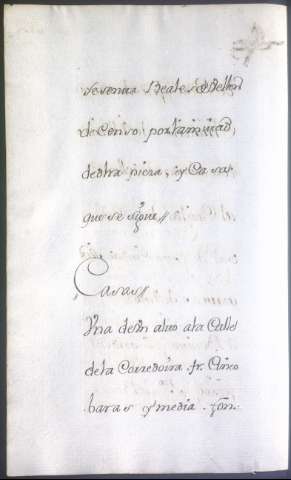 sesenta Reales de Bellon
de Censo por la mitad
de dha pieza, y Casas
que se sigue //
Casas //
Una de un alto a la Calle
de la Corredoira fr. Cinco
baras y media